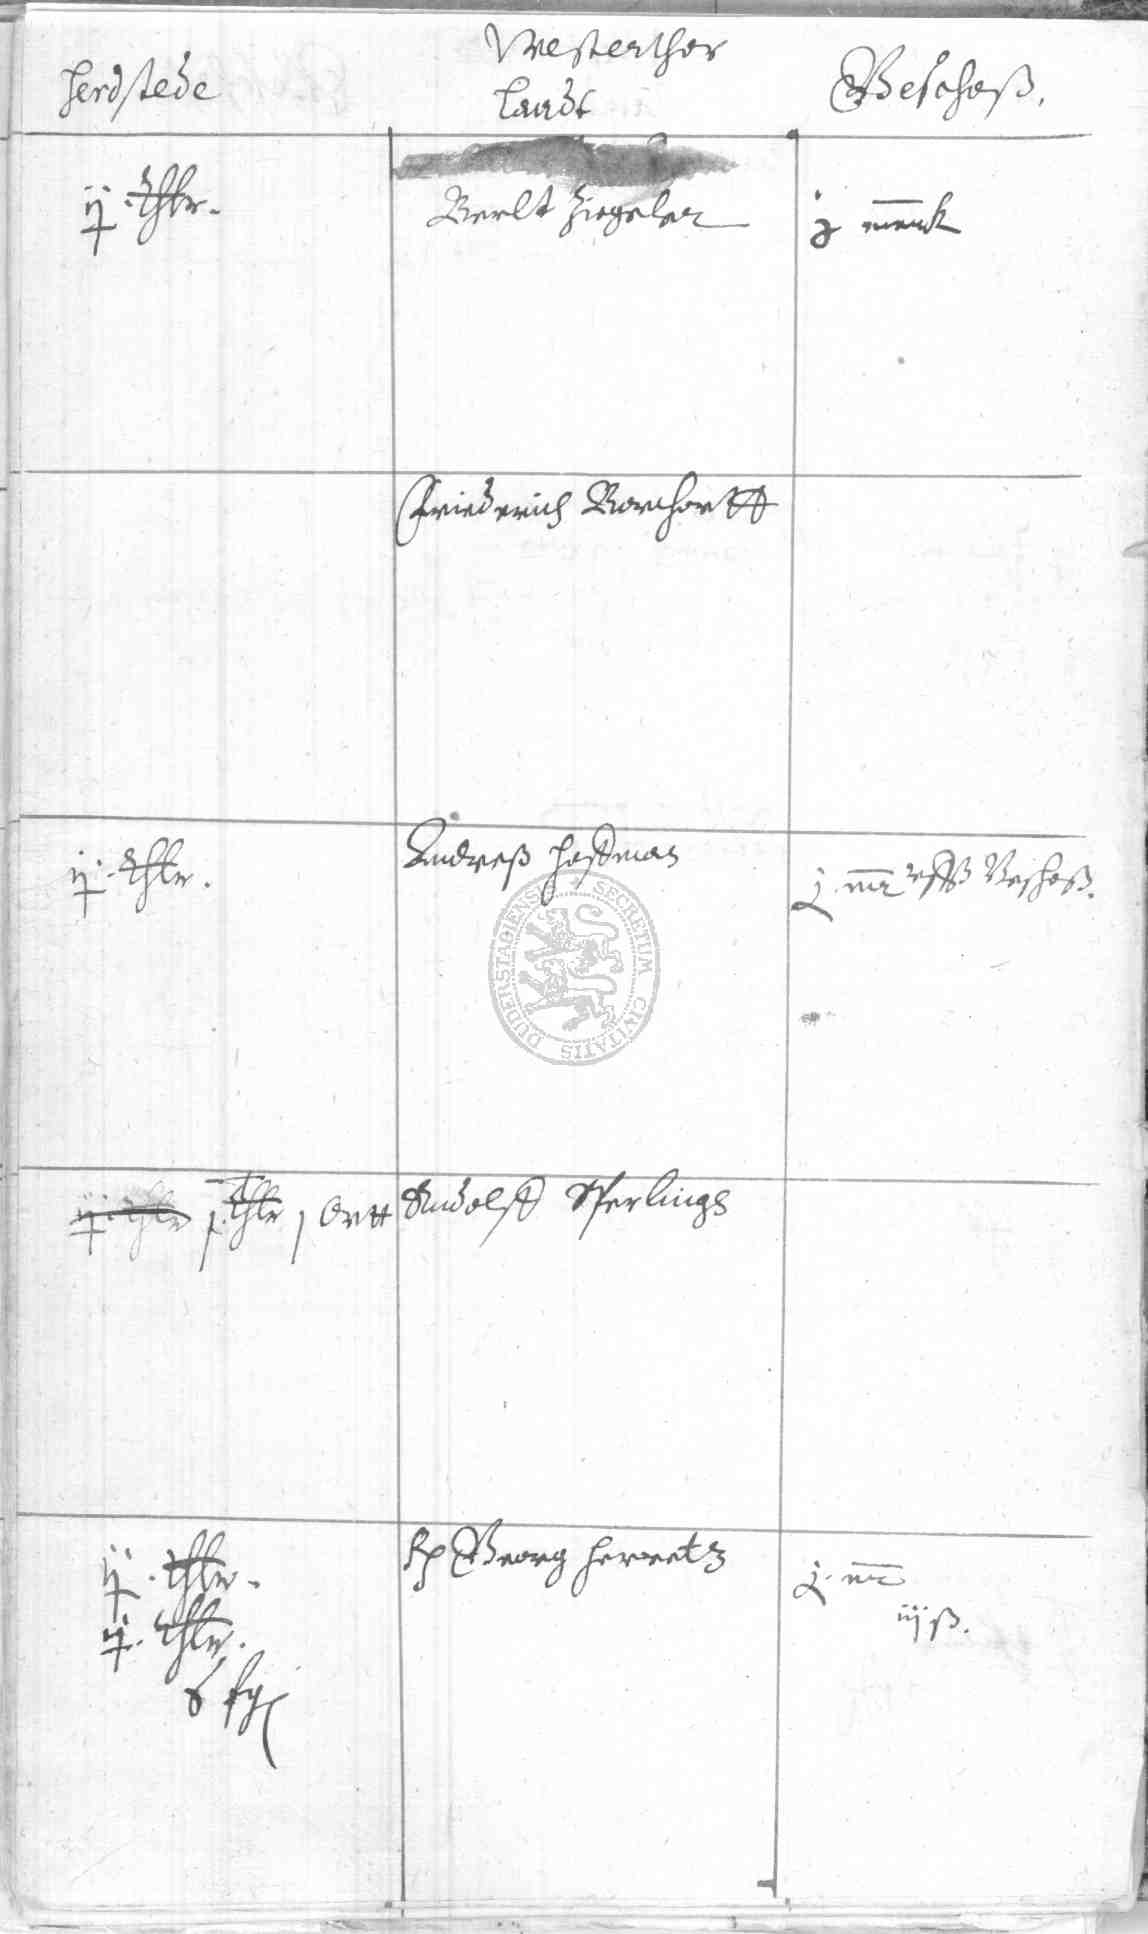 Herdstede
Westerthor
Landt
Geschoß.
ij thlr.
Berlt Ziegeler
j marck
Friederich Borchortt
ij thlr.
Andreß Hoffman
j mr Geschoß.
ij thlr j thlr j Ortt
Rudolff Sperlings
ij. thlr.
Georg Herwetz
j. mr
iij ß.
ij. thlr.
DUDERSTADIENSE SECRETUM CIVITATIS